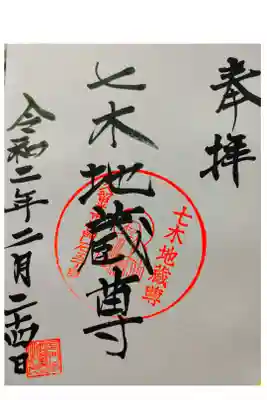 奉拝
七木地蔵尊
令和二年二月二十四日
七木地蔵尊